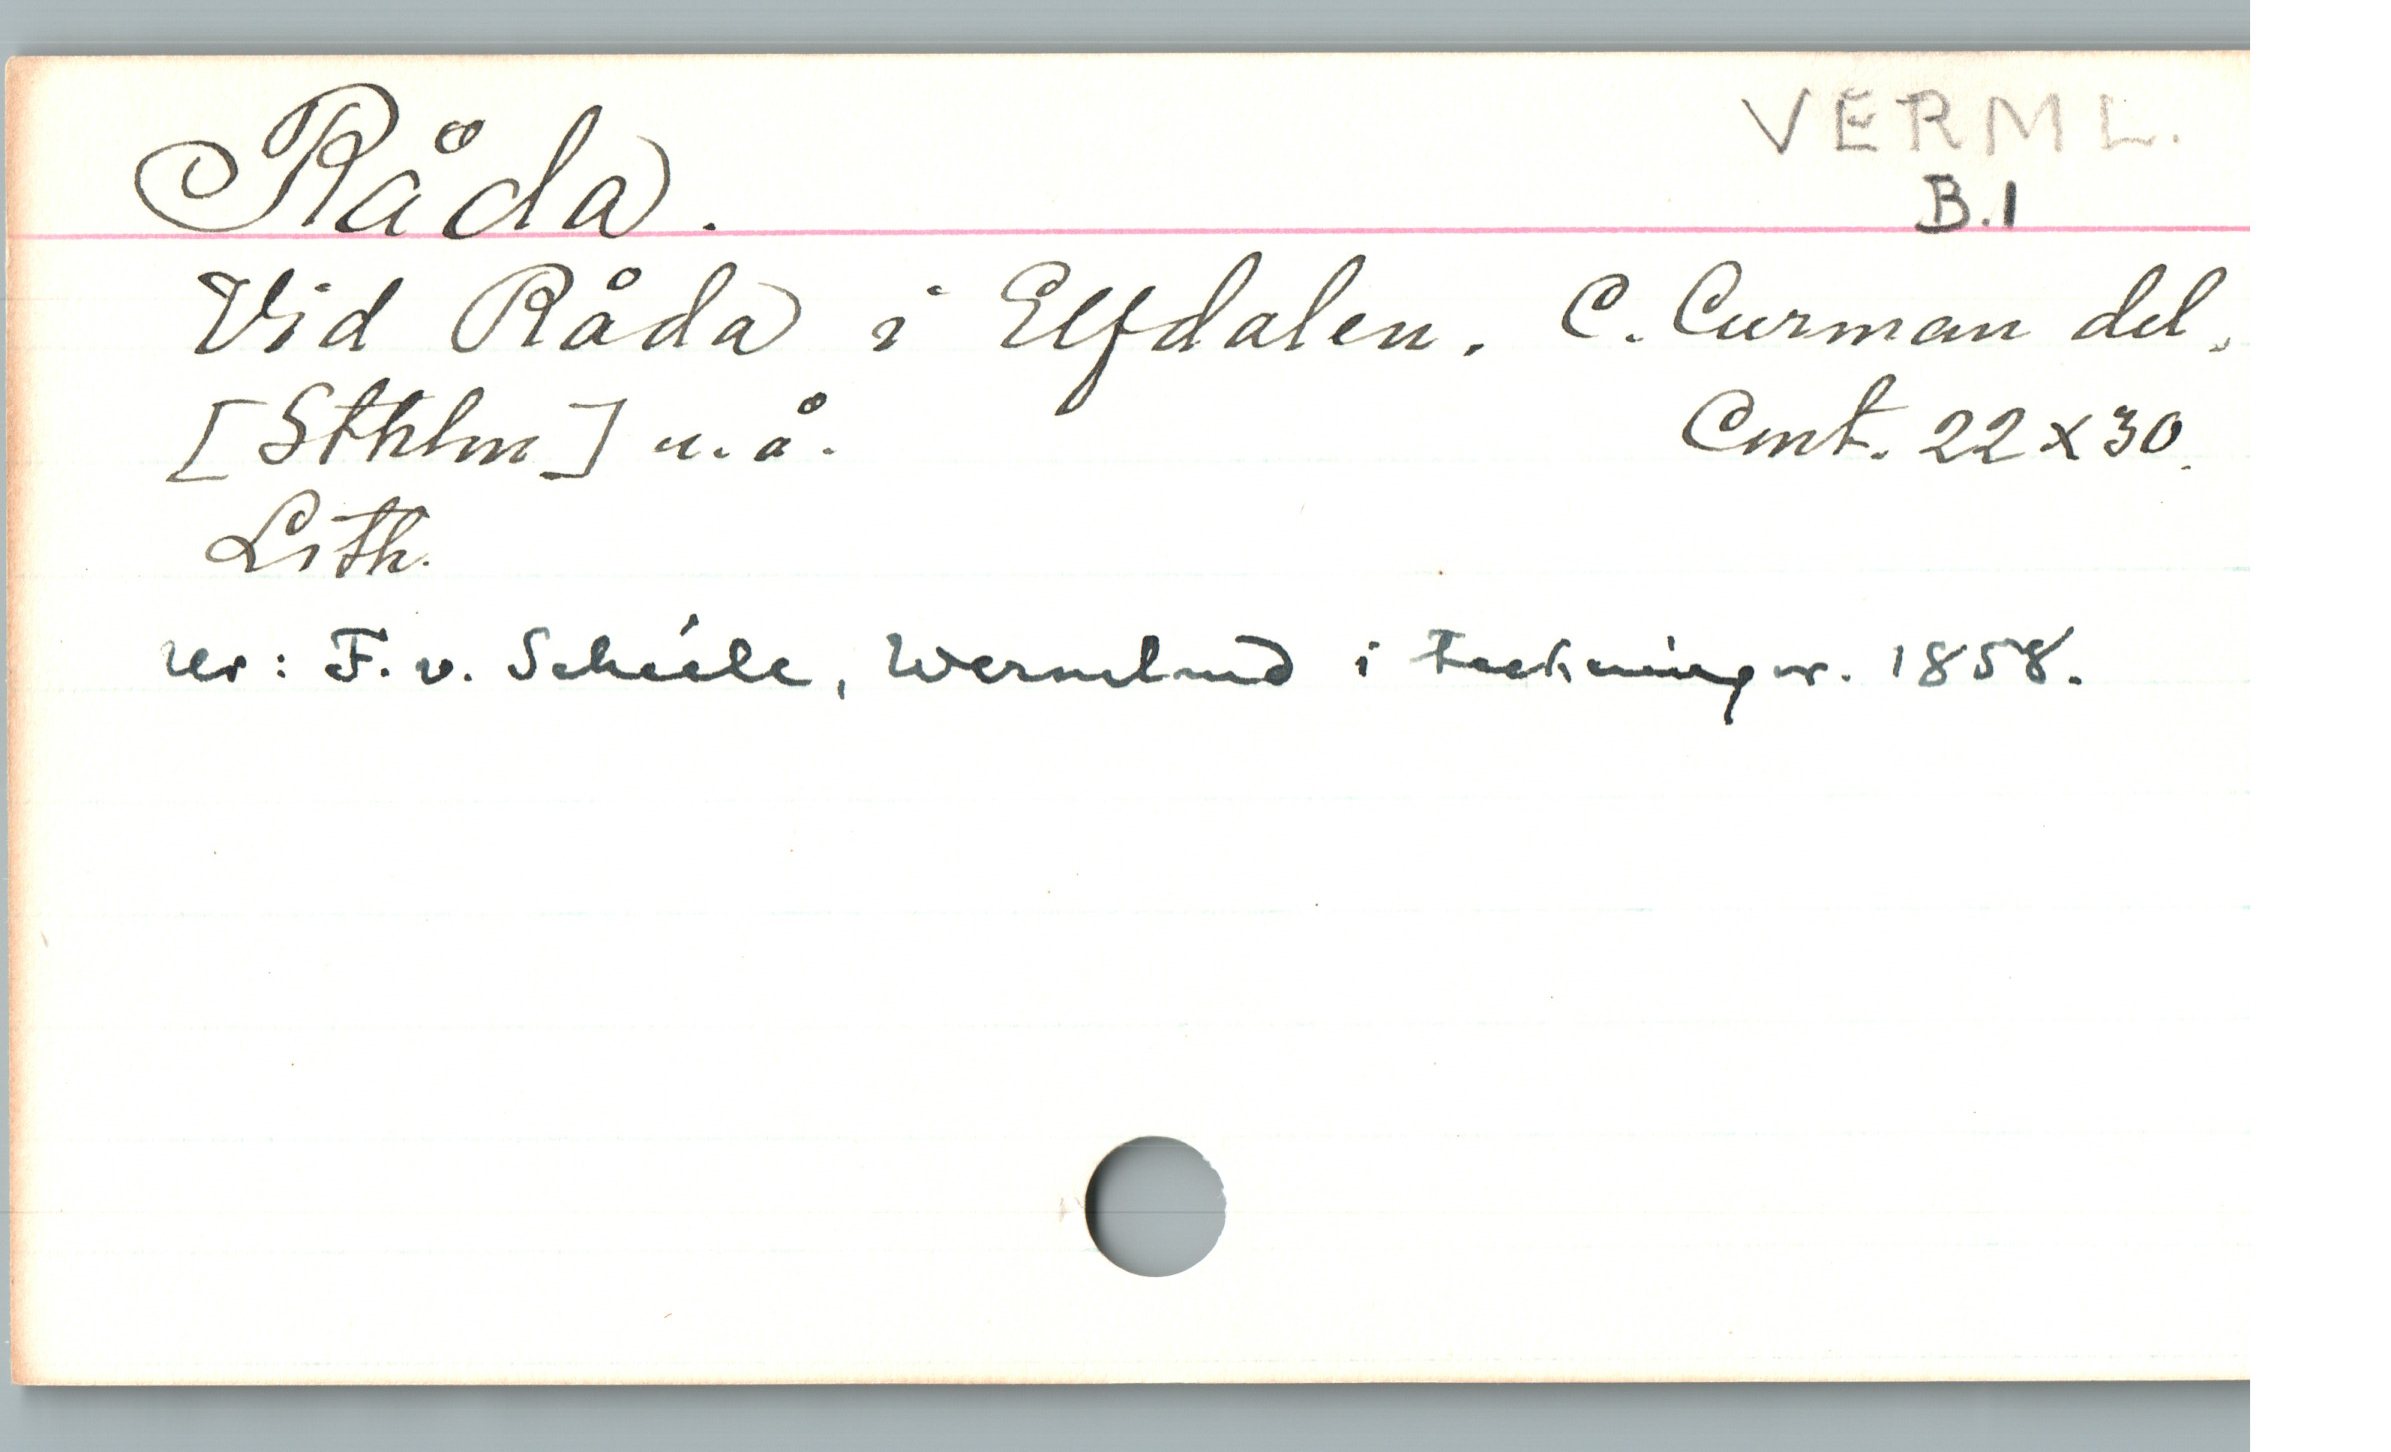 Råda.
VERML.
B.1
Vid Råda i Elfdalen. C. Curman del.
[Sthlm] u.å. Cmt. 22 x 30.
Lith.
Ur: F. v. Schéele, Wermland i teckningar. 1858.